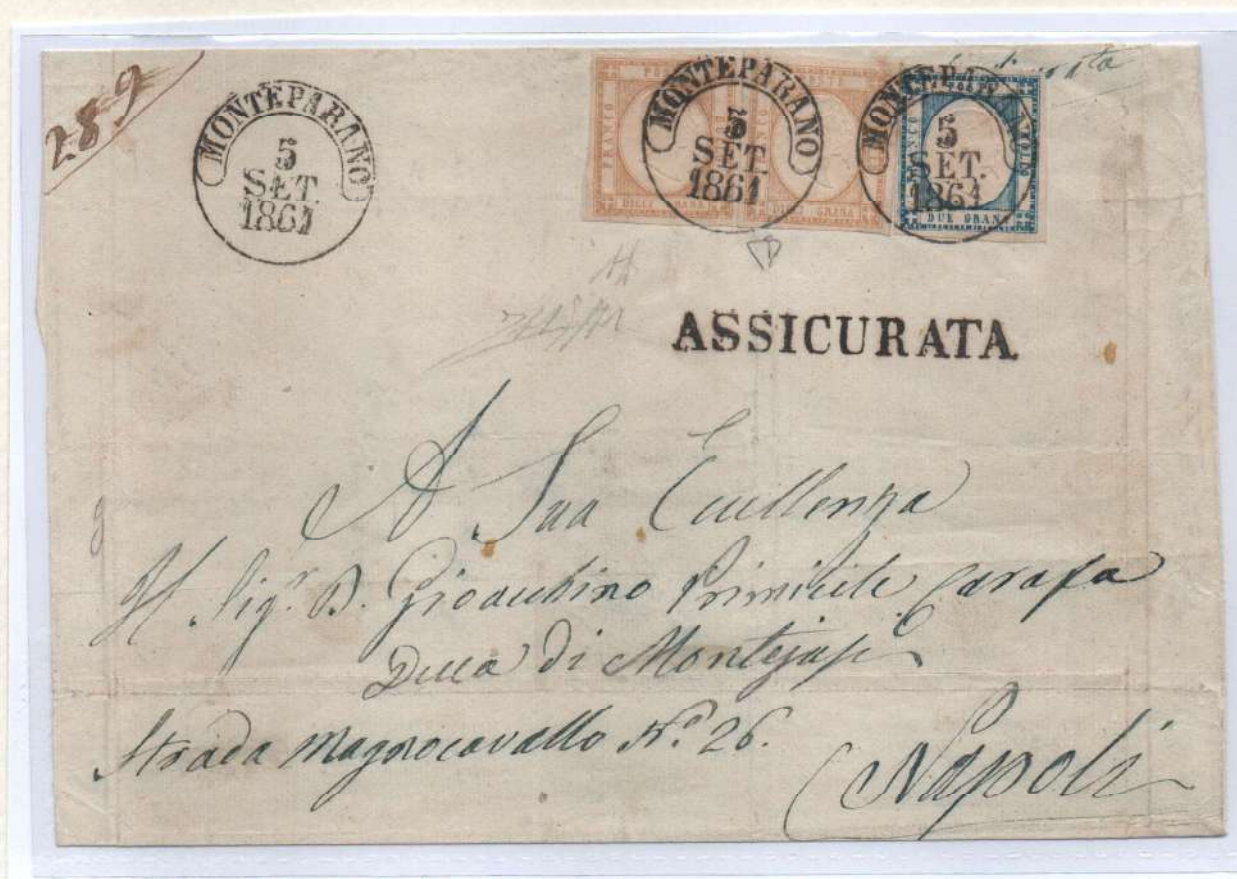 289
MONTEPARANO
5
SET.
1861
MONTEPARANO
5
SET.
1861
MONTEPARANO
5
SET.
1861
FRANCO
DIECI GRANA
DIECI GRANA
FRANCO
DUE GRANA
ASSICURATA
A Sua Eccellenza
Il Sigr. D. Gioacchino Primicile Carafa
Duca di Montejasi
Strada Magnocavallo No. 26.
Napoli